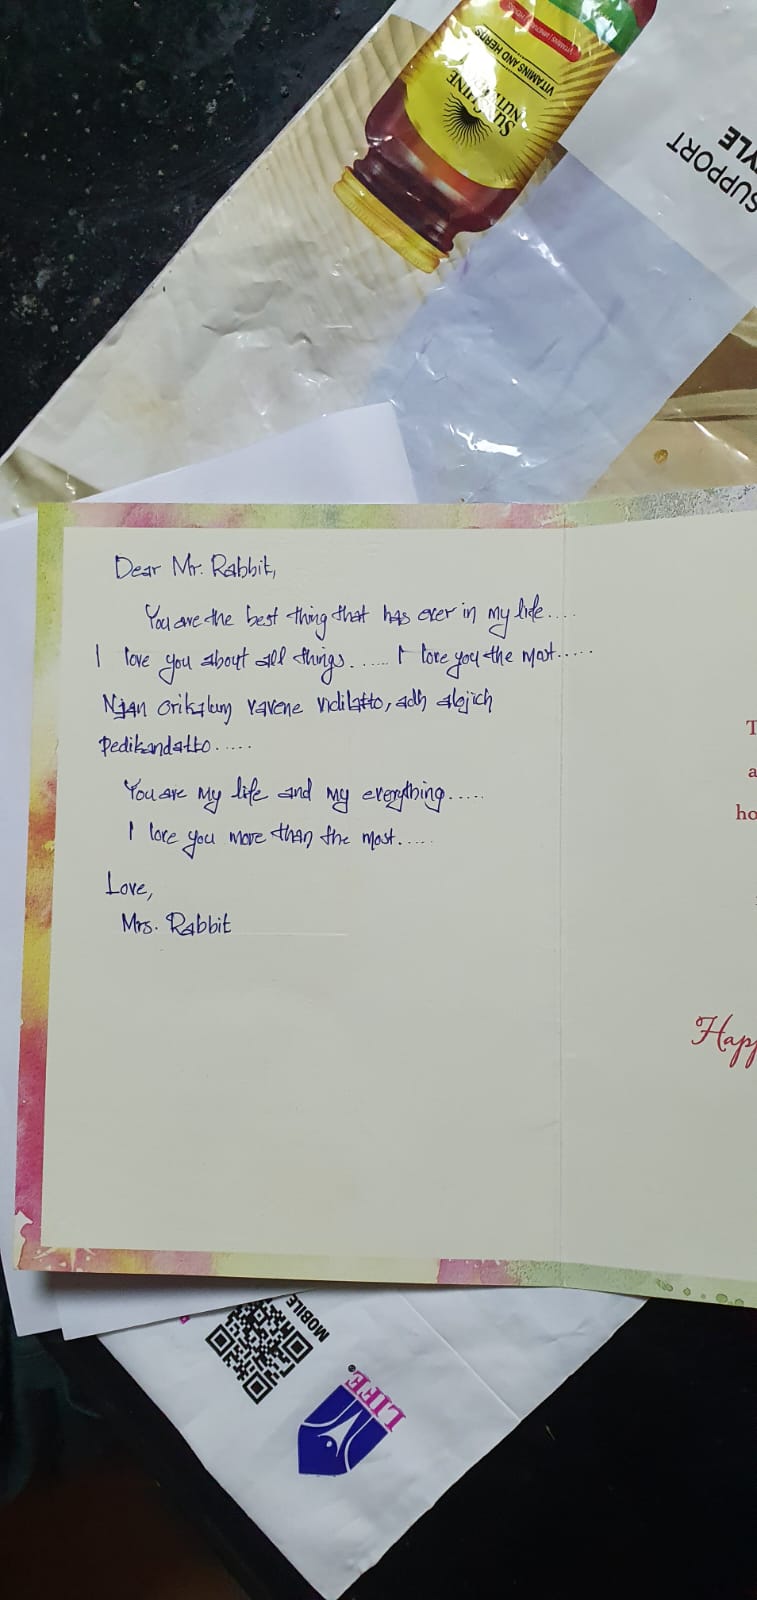 VITAMINS AND HERBS
SUNSHINE
SUPPORT
Dear Mr. Rabbit,
You are the best thing that has ever in my life....
I love you about all things...... I love you the most.....
Njan orikalum vavene vidilatto, adh alojich
Pedikandatto.....
You are my life and my everything.....
I love you more than the most.....
Love,
Mrs. Rabbit
T
a
ho
Happ
MOBILE
LIFE®